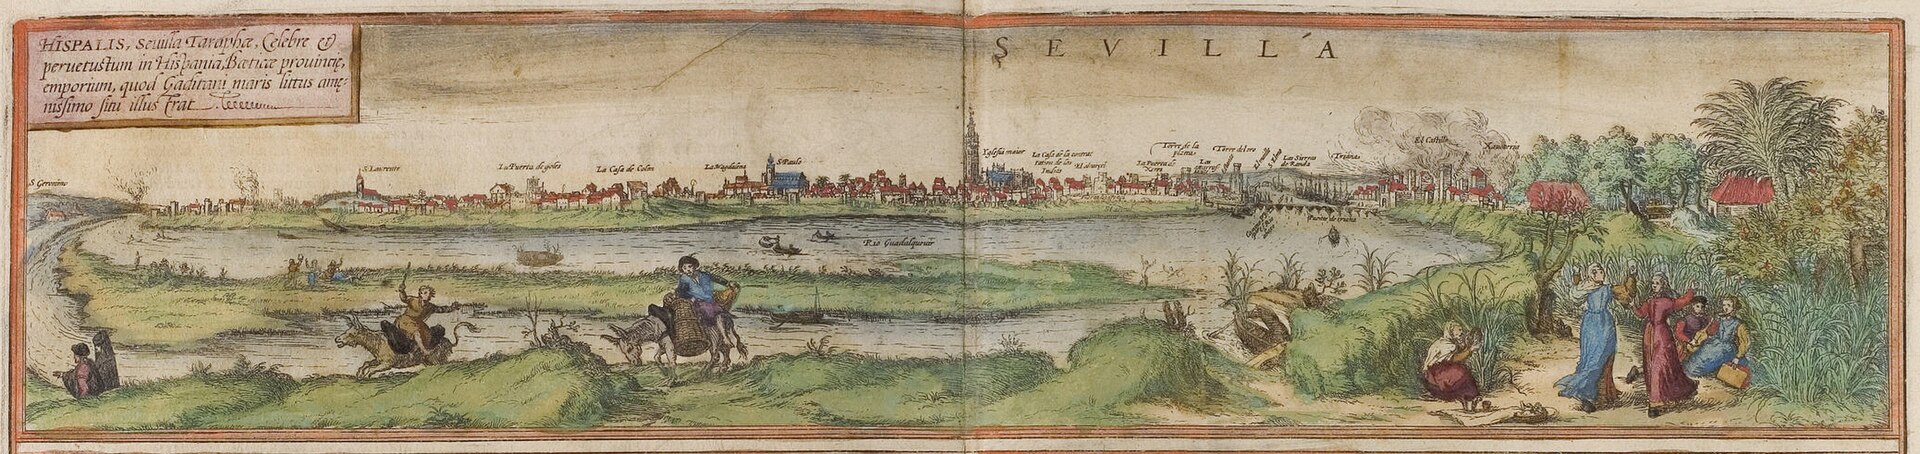 HISPALIS, Seuilla Taraphæ, Celebre &
peruetustum in Hispania, Bæticæ prouinciæ,
emporium, quod Gaditani maris littus amę-
nissimo situ illustrat
SEVILLA
S Geronimo
S. Laurente
La Puerta de goles
La Casa de Colon
La Magdalena
S. Paulo
Yglesia maior
La Casa de la contrat
tation de las
Indias
La Puerta de
Xerez
Torre de la
plata
Torre del oro
Las Sierras
de Ronda
Triana
El Castillo
Rio Guadalquivir